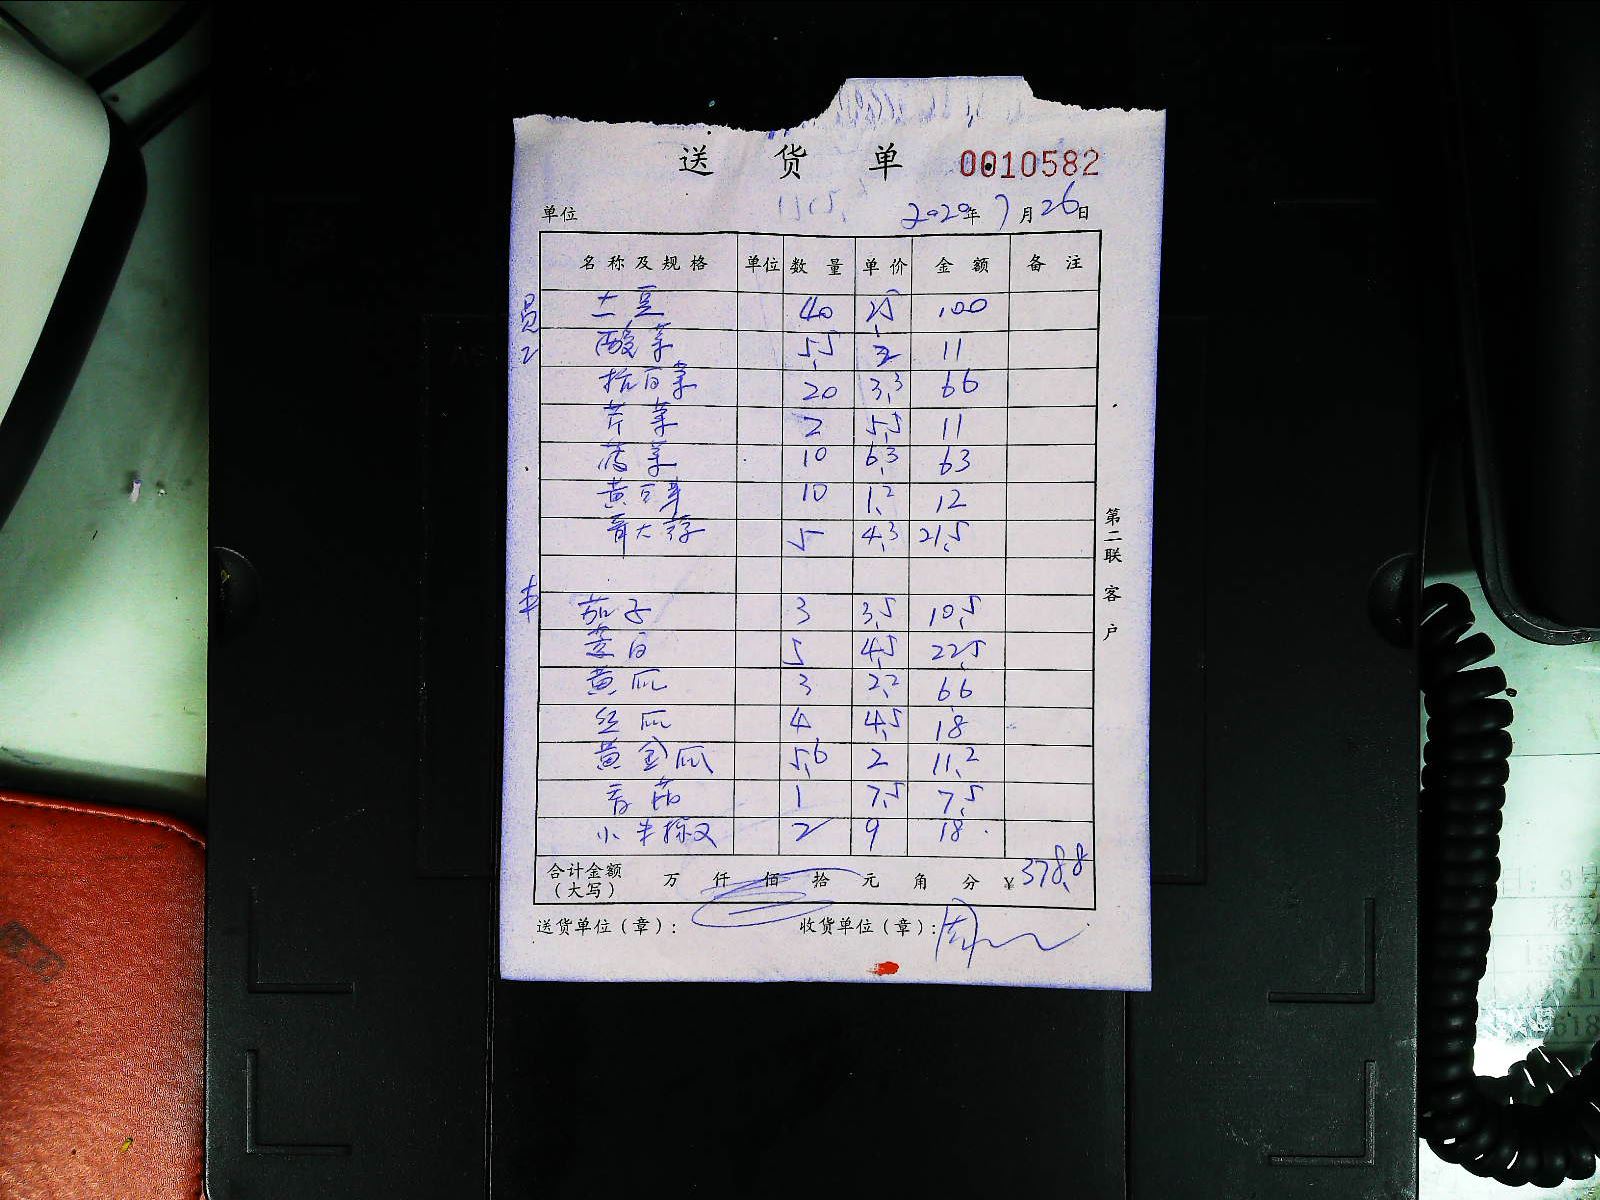 送 货 单 0010582
单位 2020年 7月 26日
名称及规格 单位 数量 单价 金额 备注
员工
土豆 40 2.5 100
酸菜 5.5 2 11
杭白菜 20 3.3 66
芹菜 2 5.5 11
菜 10 6.3 63
黄豆芽 10 1.2 12
青大蒜 5 4.3 21.5
茄子 3 3.5 10.5
茭白 5 4.5 22.5
黄瓜 3 2.2 6.6
丝瓜 4 4.5 18
黄金瓜 5.6 2 11.2
香菇 1 7.5 7.5
小 2 9 18
合计金额（大写） 万 仟 佰 拾 元 角 分 ¥ 378.8
送货单位（章）： 收货单位（章）：
第二联 客户